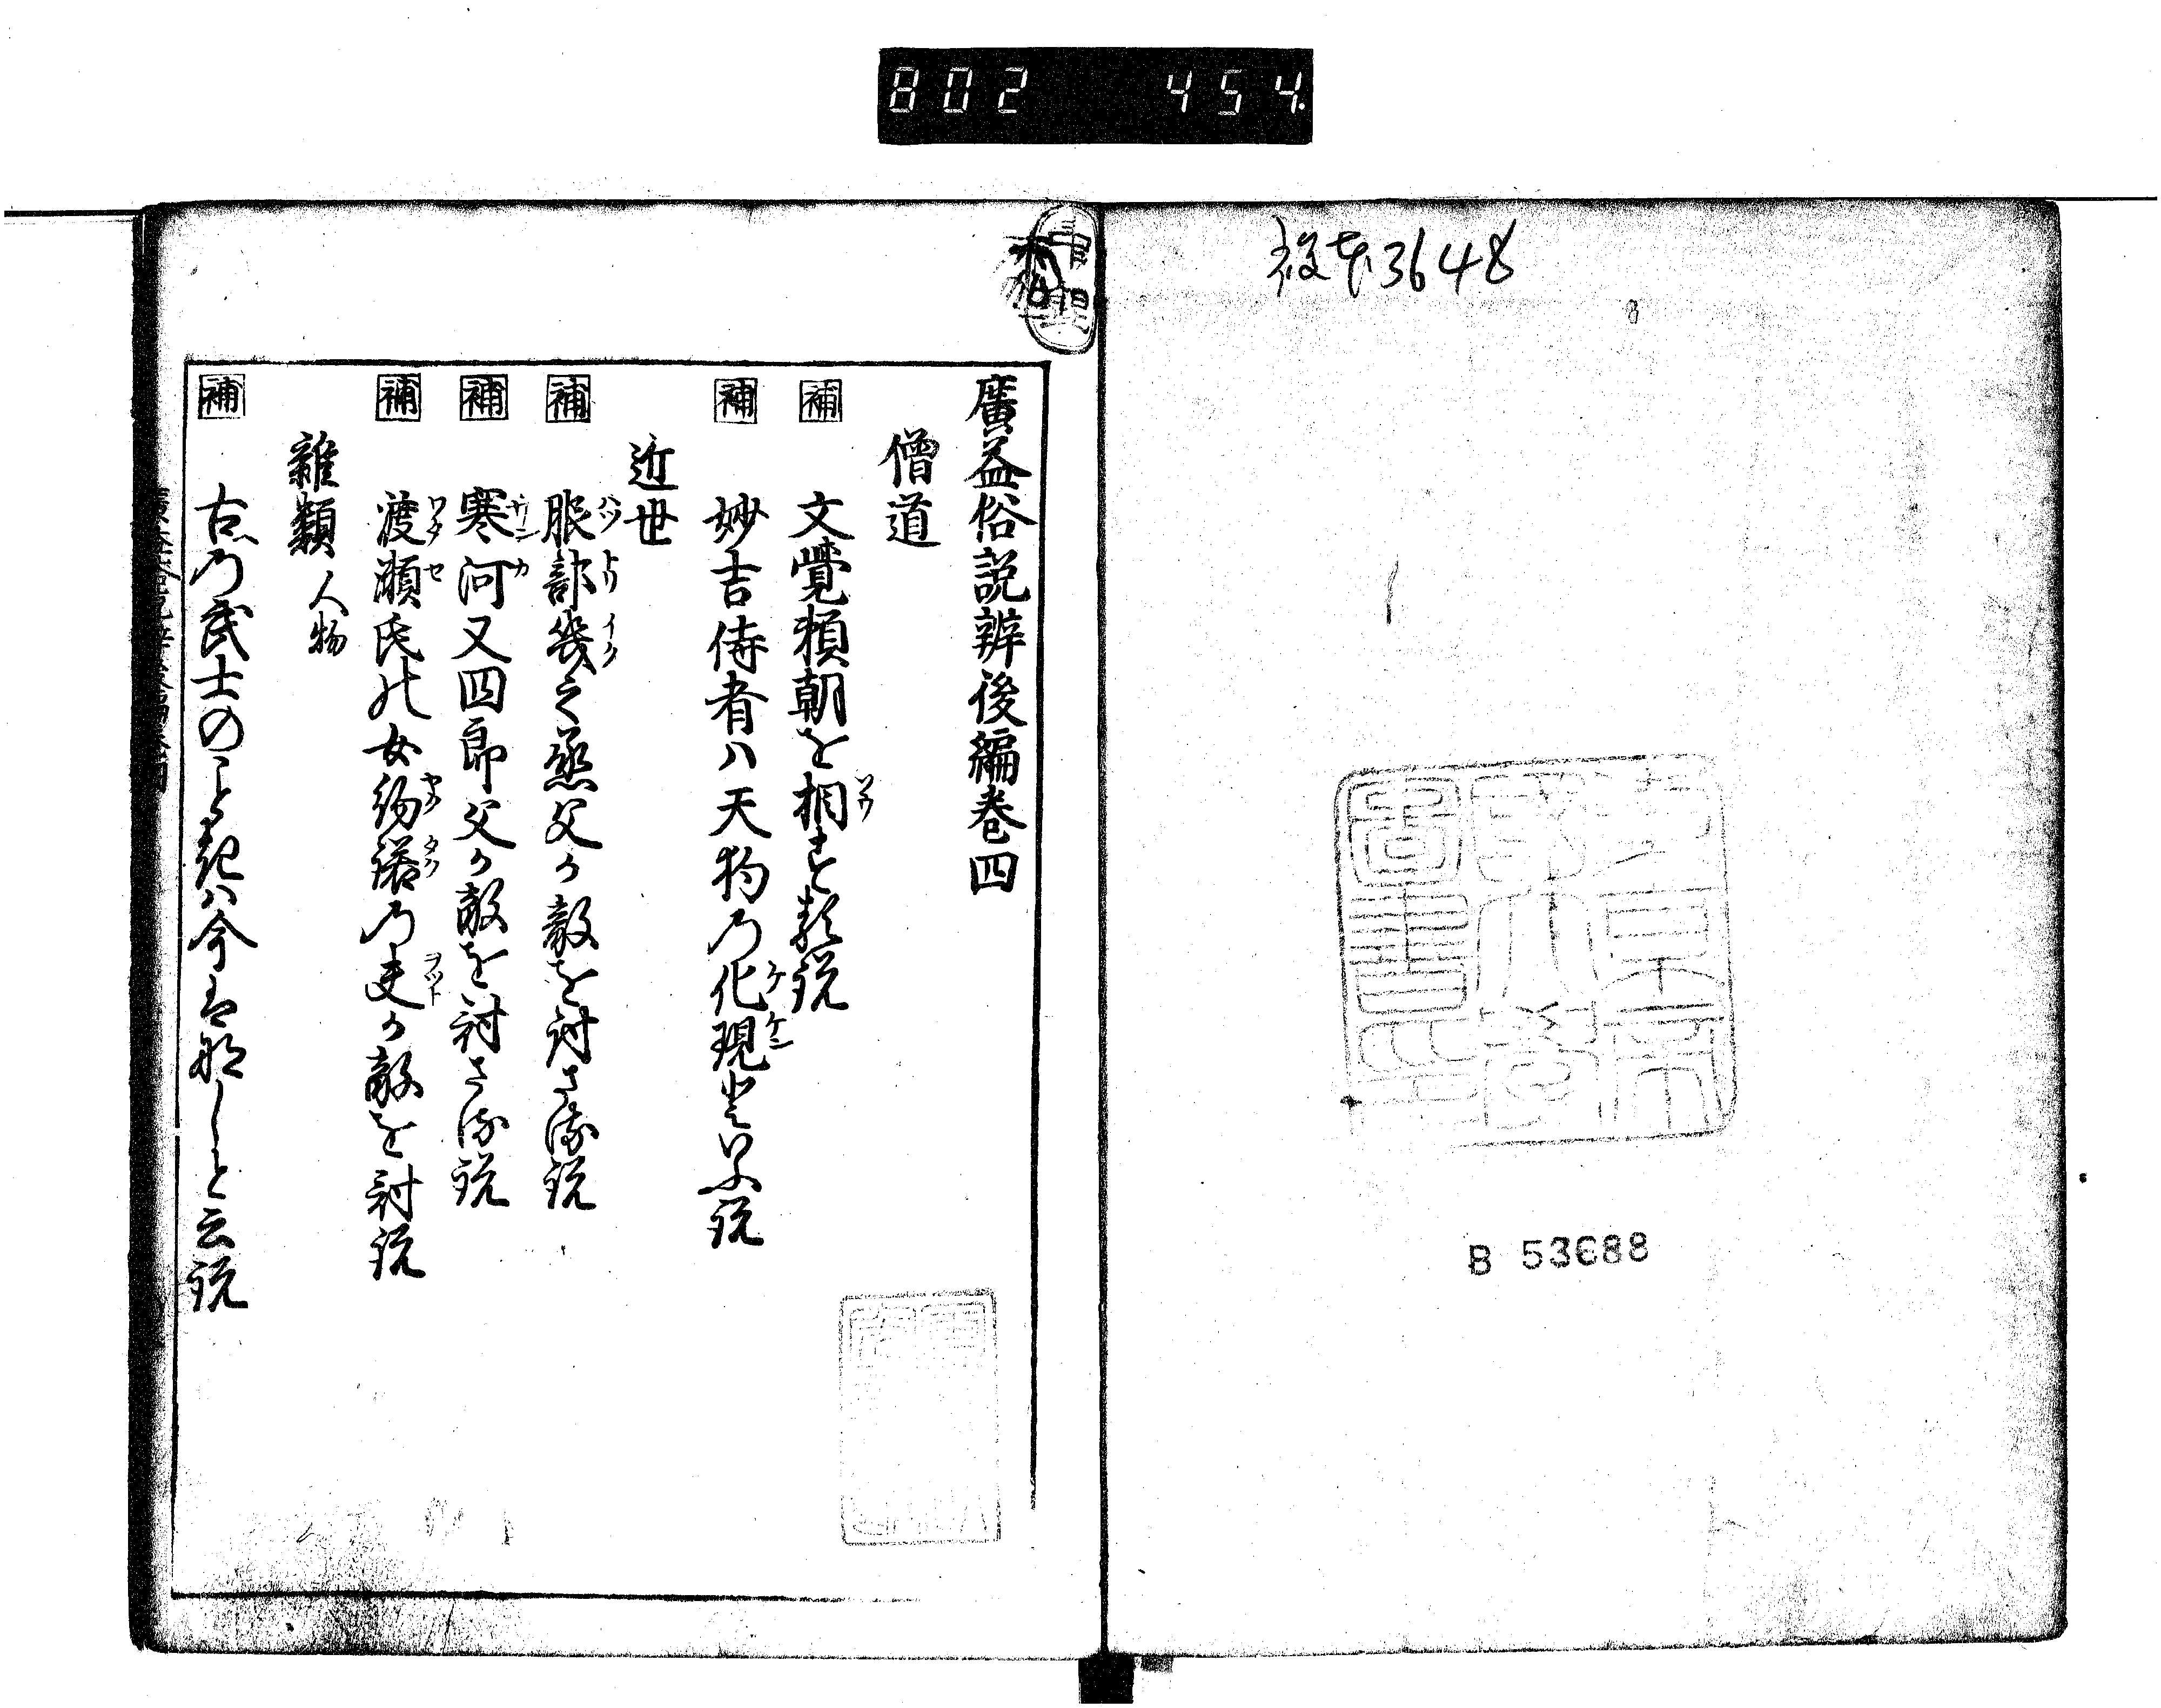 802 454.
複本3648
8
B 53688
廣益俗説辨後編巻四
僧道
補 文覺頼朝を相する説
補 妙吉侍者ハ天狗の化現といふ説
近世
補 服部幾之丞父か敵を討さる説
補 寒河又四郎父か敵を討さる説
補 渡瀬氏の女約諾の夫か敵を討説
雑類 人物
補 古の武士のことき ハ今は那しと云説